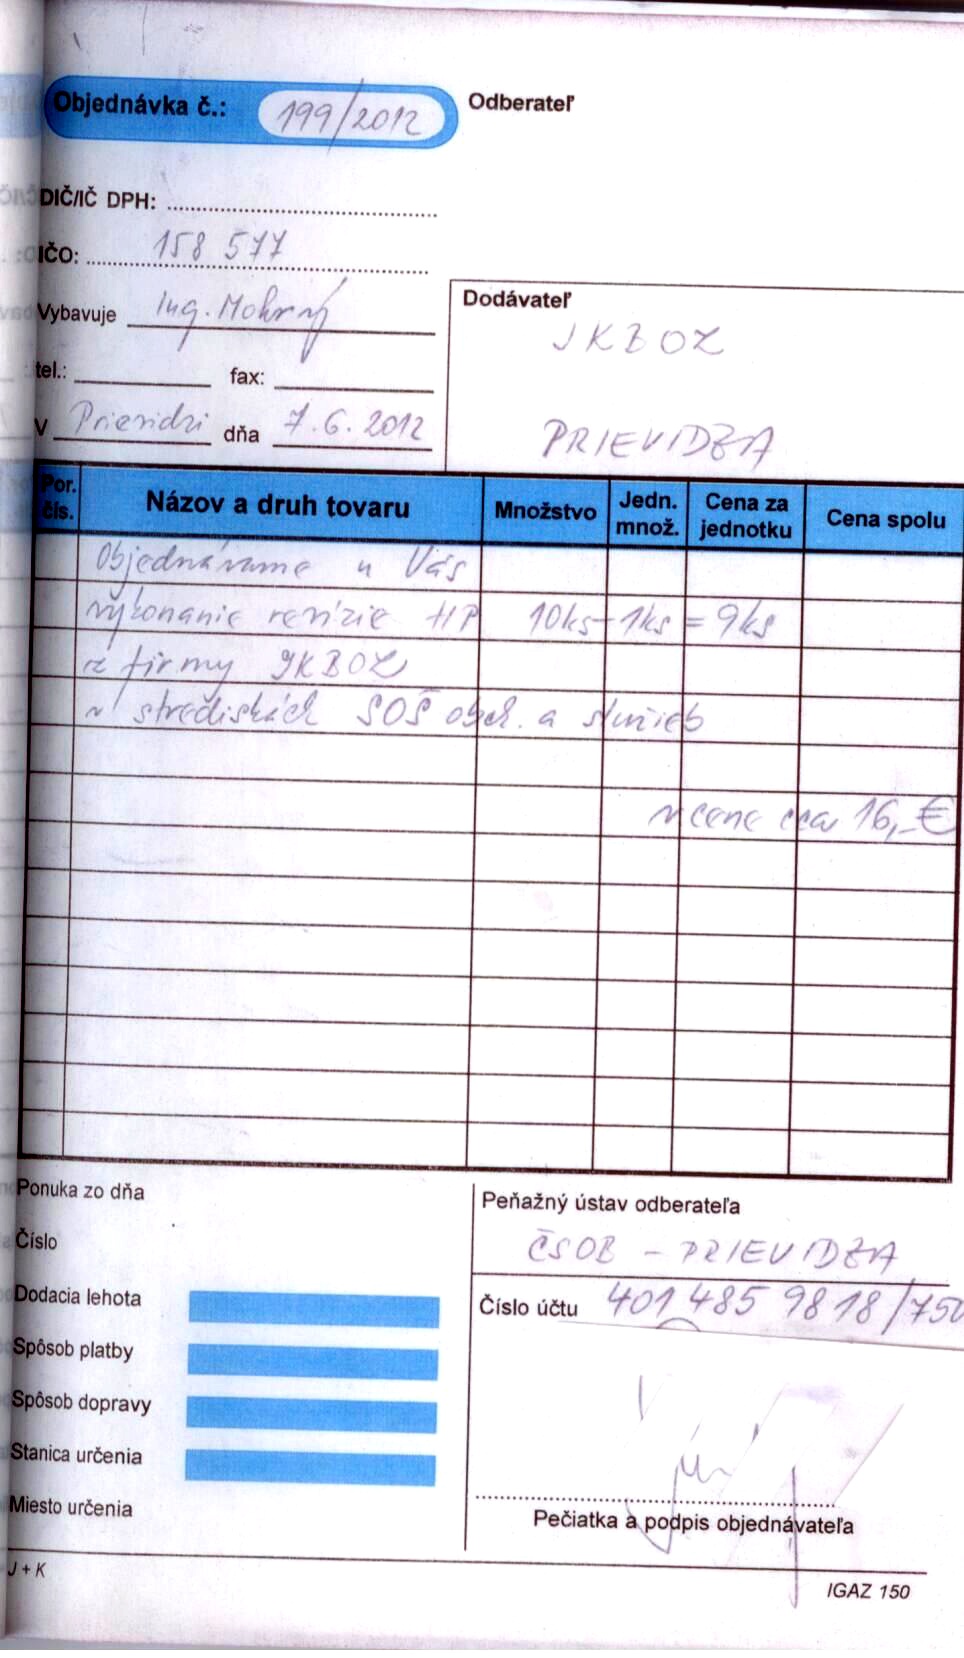 Objednávka č.: 199/2012
Odberateľ
DIČ/IČ DPH:
IČO: 158 577
Vybavuje Ing. Mokrný
tel.: fax:
V Prievidzi dňa 7.6.2012
Dodávateľ
JKBOZ
PRIEVIDZA
Por. čís. Názov a druh tovaru Množstvo Jedn. množ. Cena za jednotku Cena spolu
Objednávame u Vás
vykonanie revízie HP 10ks - 1ks = 9ks
z firmy JKBOZ
v strediskách SOŠ obch. a služieb
v cene cca 16,- €
Ponuka zo dňa
Číslo
Dodacia lehota
Spôsob platby
Spôsob dopravy
Stanica určenia
Miesto určenia
Peňažný ústav odberateľa
ČSOB - PRIEVIDZA
Číslo účtu 401 485 9818/750
Pečiatka a podpis objednávateľa
J + K
IGAZ 150